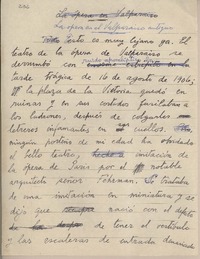 La ópera en Valparaíso
La ópera en el Valparaíso antiguo
Todo esto es muy lejano ya. El
teatro de la ópera de Valparaíso se
derrumbó con
tarde trágica de 16 de agosto de 1906;
la plaza de la Victoria quedó en
ruinas y en sus costados fusilaban a
los ladrones, después de colgarles
letreros infamantes en cuellos.
ninguna persona de mi edad ha olvidado
el bello teatro, hecho a imitación de
la ópera de París por el notable
arquitecto señor
una imitación en miniatura y se
dijo que nació con el defecto
de tener el vestíbulo
y las escaleras de entrada demasiado